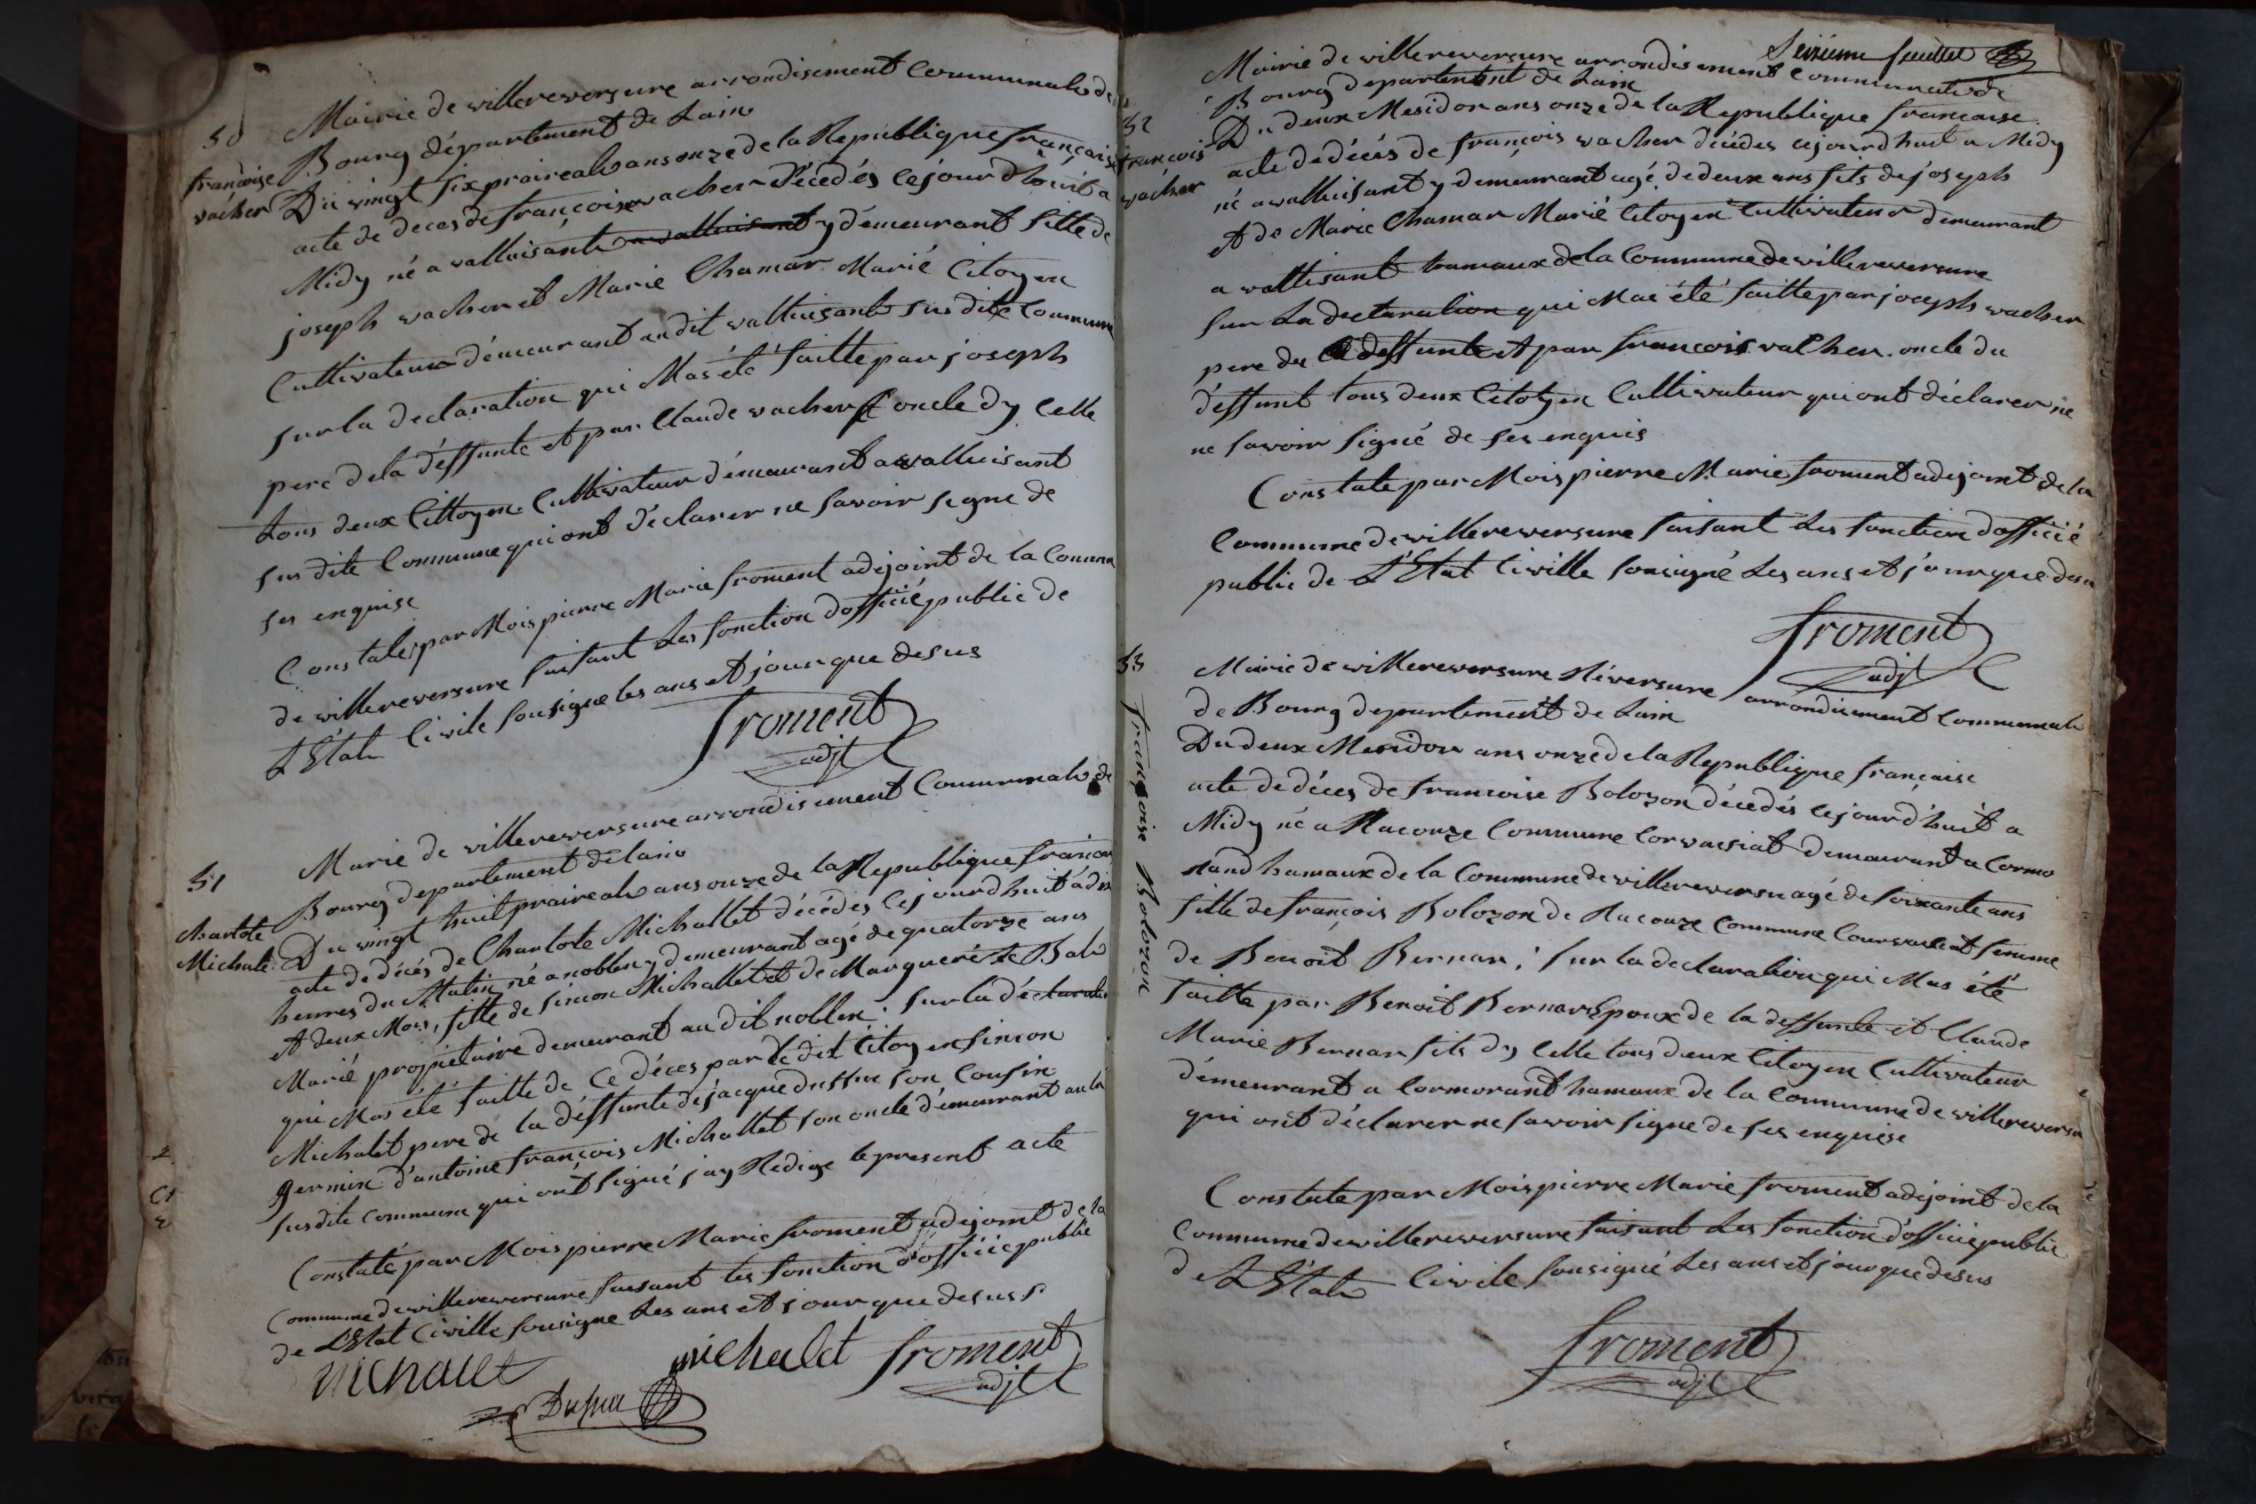 50
françoise
vacher
Mairie de villereversure arrondisement Communale de
Bourg département de Lain
Du vingt six praireale ans onze de la Republique française
acte de deces de françoise vacher décedés cejourdhuit a
Midy né a valluisant a valluisant y démeurant fille de
joseph vacher et Marie Chamar Marié Citoyen
Cultivateur démeurant audit valluisant susdite Commune
sur la declaration qui Mas été faitte par joseph
pere dela déffunte et par Claude vacher oncle dy celle
tous deux Cittoyen Cultivateur démeurant a valluisant
susdite Commune qui ont déclarer ne savoir signe de
ses enquise
Constate par Mois pierre Marie froment adejoint de la Commu
de villereversure faisant Les fonction dofficié public de
LEtat Civile sousigne les ans et jour que desus
froment
adjt
51
Charlote
Michale
Marie de villereversure arrondisement Communale de
Bourg departement de lain
Du vingt huit praireale ans onze de la Republique françai
acte de décés de Charlote Michallet décédés Cejourdhuit a dix
heures du Matin né a noblen y demeurant agé de quatorze ans
et deux Mois, fille de simon Michallet et de Marguerete Bal
Marié propriétaire demeurant au dit noblen. sur la déclaration
qui Mas été faitte de Ce déces par le dit Citoyen simon
Michalet pere de la déffunte de jacque duffue son Cousin
germin d'antoine françois Michallet son oncle démeurant au la
susdite commune qui ont signé jay Redige le present acte
Constaté par Mois pierre Marie froment adejoint de la
Commune de villereversure faisant les fonction d'officié public
de LEtat Civille sousigne Les ans et jour que desus
michalet
michalet
froment
adjt
Seizieme feuillet
52
françois
vacher
Mairie de villereversure arrondisement Communale de
Bourg departement de Lain
Du deux Mesidor ans onze de la Republique francaise
acte de décés de françois vacher décédes cejourdhuit a Midy
né a valluisant y demeurant agé de deux ans fils de joseph
et de Marie Chamar Marié Citoyen Cultivateur demeurant
a vallisant hamaux de la Commune de villereversure
sur La declaration qui Mas été faitte par joseph vacher
pere du deffunte et par francois vacher oncle du
déffunt tous deux Citoyen Cultivateur qui ont déclarer ne
ne savoir signé de ses enquis
Constate par Mois pierre Marie froment adejoint de la
Commune de villereversure faisant Les fonction dofficié
public de L'Etat Civille sousigné Les ans et jour que desu
froment
adjt
53
françoise Bolozon
Mairie de villereversure Réversure arrondisement Communale
de Bourg departement de Lain
Du deux Mesidor ans onze de la Republique française
acte de déces de francoise Bolozon décedés cejourd'huit a
Midy né a Racouze Commune Corvaisiat demeurant a Cormo
rand hamaux de la Commune de villereversu agé de soixante ans
fille de françois Bolozon de Racouze Commune Courvaisiat femme
de Benoit Bernar; sur la declaration qui Mas été
faitte par Benoit Bernar Epoux de la deffunte et Claude
Marie Bernar fils dy Celle tous deux Citoyen Cultivateur
démeurant a Cormorant hamaux de la Commune de villereversu
qui ont déclarer ne savoir signe de ses enquise
Constate par Mois pierre Marie froment adejoint de la
Commune de villereversure faisant Les fonction d'officié public
de LEtat Civile sousigné Les ans et jour que desus
froment
adjt